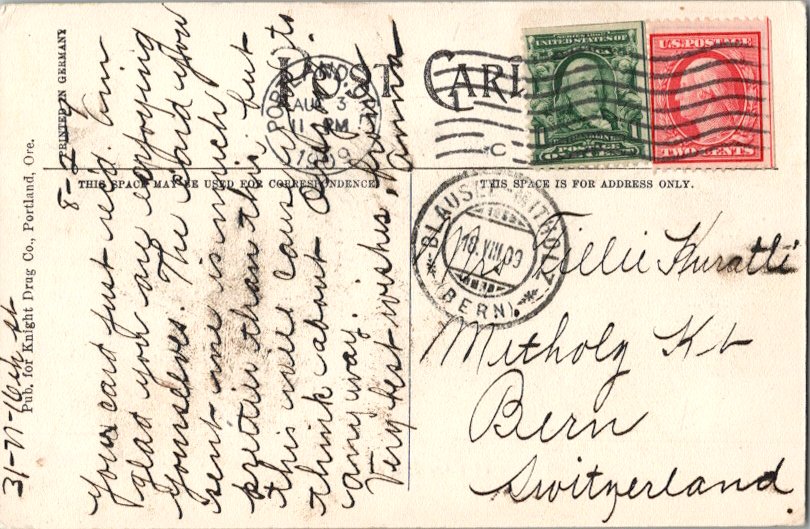 POST CARD
PRINTED IN GERMANY
Pub. for Knight Drug Co., Portland, Ore.
THIS SPACE MAY BE USED FOR CORRESPONDENCE
THIS SPACE IS FOR ADDRESS ONLY.
PORTLAND
AUG 3
11 PM
1909
SERIES 1902
UNITED STATES OF AMERICA
POSTAGE
U.S. POSTAGE
TWO CENTS
BLAUSEE-MITHOLZ
18.VIII.09
(BERN)
31-N-16th St
8-2-9
Your card just rec'd. Am
glad you are enjoying
yourselves. The card you
sent me is much
prettier than this but
this will cause you to
think about Oregon
any way.
Very best wishes from
Anna
Mrs Tillie Kuratli
Metholz Kt
Bern
Switzerland.